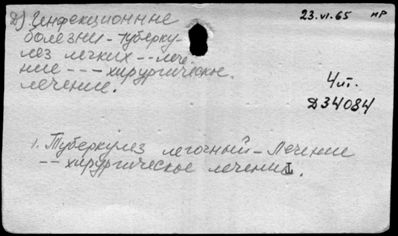 2) Инфекционные
болезни - туберку-
лез легких -- лече-
ние --- хирургическое
лечение.
23.VI.65 НР
4 п.
Д34084
1. Туберкулез легочный - Лечение
-- хирургическое лечение